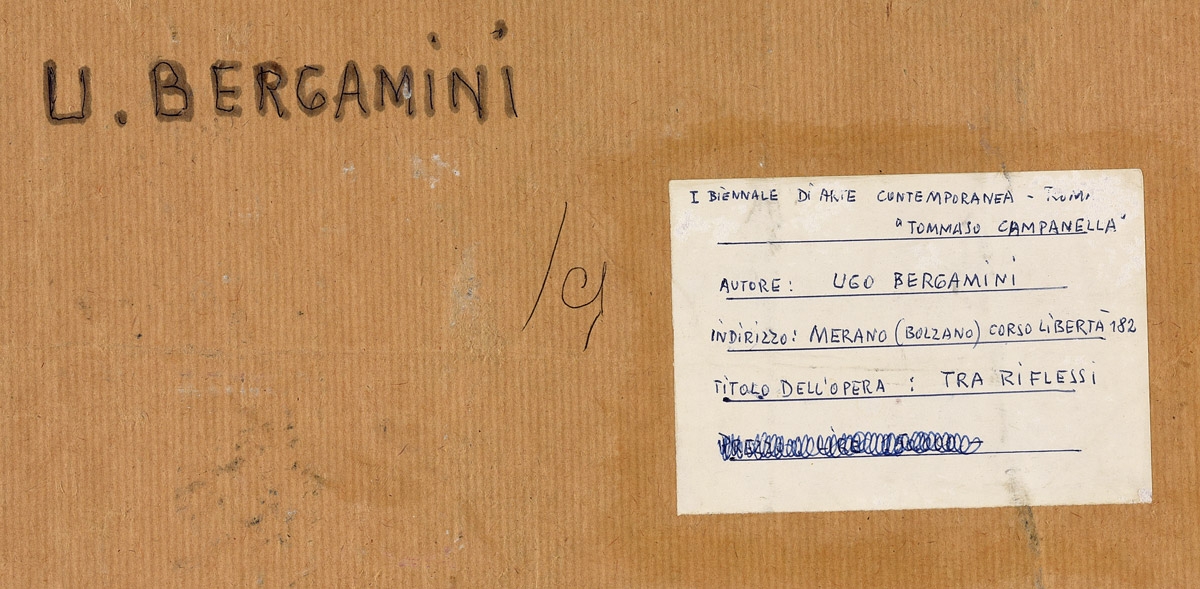 U. BERGAMINI
/9
I BIENNALE DI ARTE CONTEMPORANEA - ROMA
"TOMMASO CAMPANELLA"
AUTORE: UGO BERGAMINI
INDIRIZZO: MERANO (BOLZANO) CORSO LIBERTÀ 182
TITOLO DELL'OPERA: TRA RIFLESSI